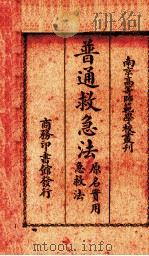 南京高等師範學校叢刊
普通救急法
原名實用
急救法
商務印書館發行
www.toutoung.com